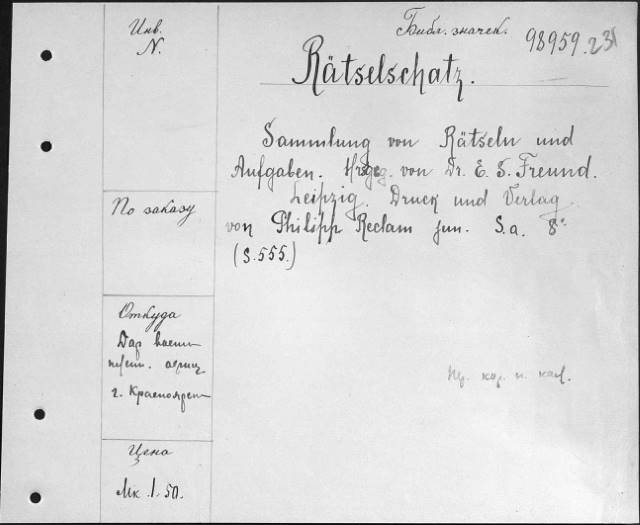 Инв. N.
Библ. значек. 98959.
Rätselschatz.
Sammlung von Rätseln und
Aufgaben. Hrsgeg. von Dr. E. S. Freund.
Leipzig. Druck und Verlag
von Philipp Reclam jun. S.a. 8°
(S.555.)
По заказу
Откуда
Дар военн
г. Красноярск
Цена
Мк. 1.50.